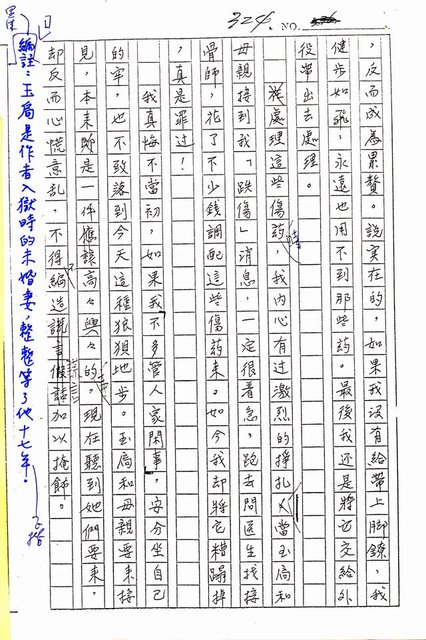 324
NO.
，反而成為累贅。說實在的，如果我沒有給帶上腳鐐，我
健步如飛，永遠也用不到那些药。最後我還是將它交給外
役帶出去處理。
於處理這些傷药時，我內心有过激烈的掙扎，當玉局和
母親接到我「跌傷」消息，一定很着急，跑去問医生找接
骨師，花了不少錢調配這些傷药來。如今我却將它糟蹋掉
，真是罪过！
我真悔不當初，如果我不多管人家閑事，安分坐自己
的牢，也不致諑到今天這種狼狽地步。玉局和母親要來接
見，本來即是一件應該高々興々的事，現在聽到她們要來，
却反而心慌意乱，不得不編造謊言假話加以掩飾。
編註：玉局是作者入獄時的未婚妻，整整等了他十七年。